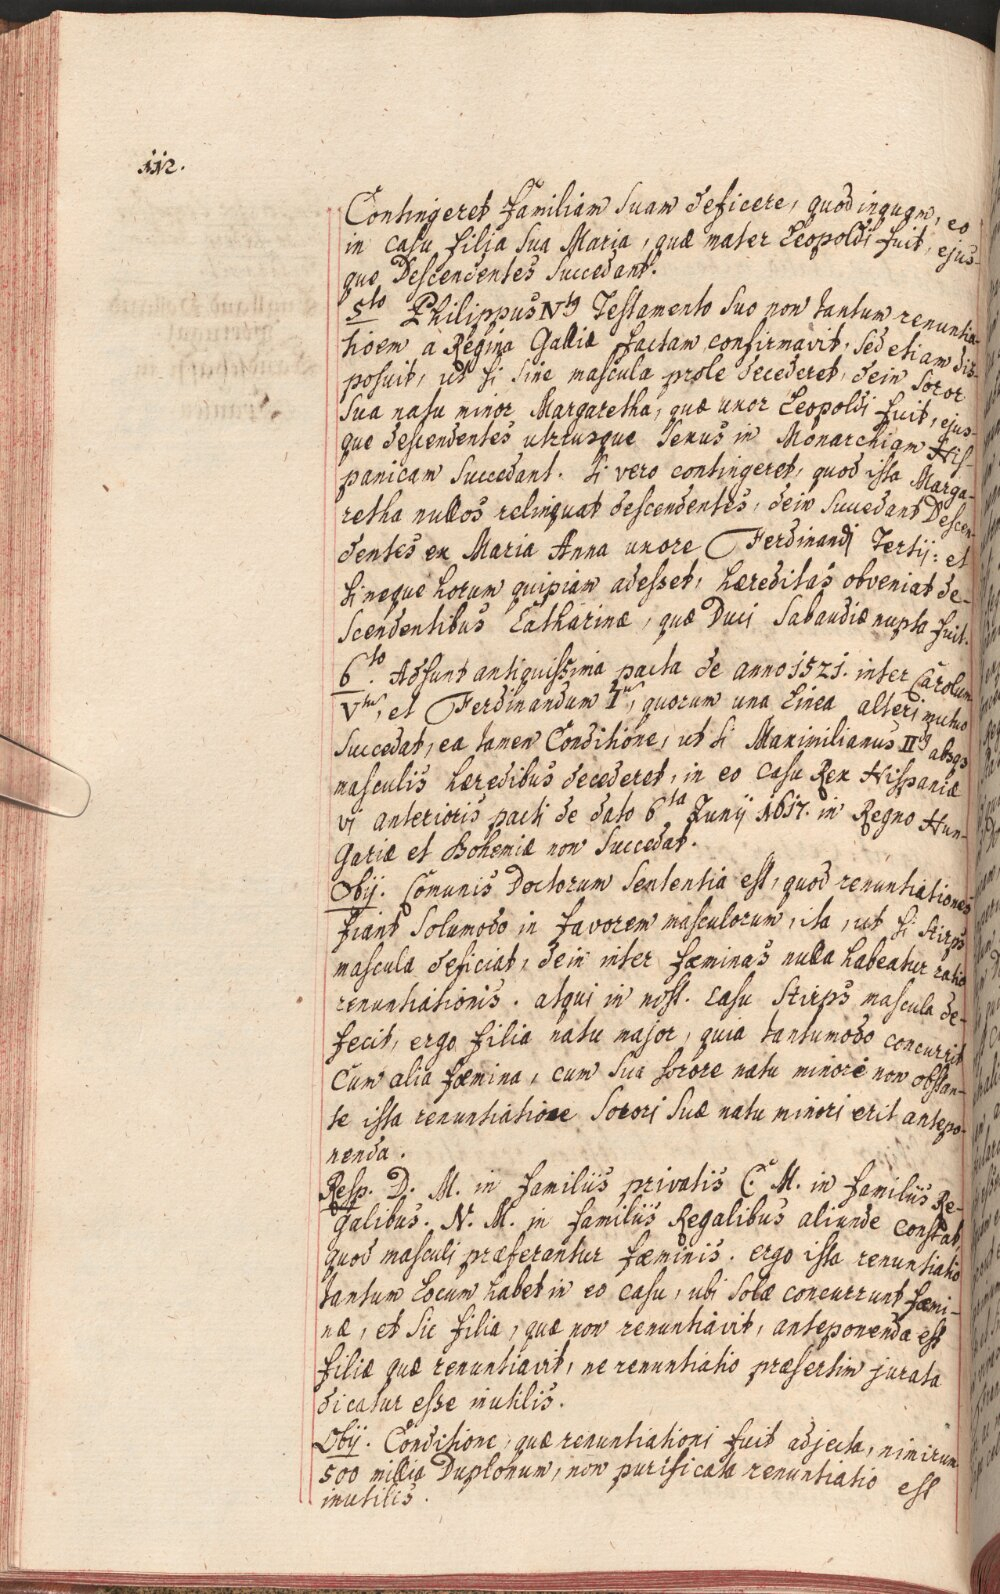 112.
Contingeret familiam suam deficere, quod inquam, eo
in casu filia sua Maria, quæ mater Leopoldi fuit, ejus-
que Descendentes succedant.
5to Philippus IVtg Testamento suo non tantum renuntia-
tioem a Regina Galliæ factam confirmavit, sed etiam dis-
posuit, ut si sine mascula prole decederet, dein soror
sua natu minor Margaretha, quæ uxor Leopoldi fuit, ejus-
que descendentes utriusque sexus in Monarchiam His-
panicam succedant. si vero contingeret, quod ista Marga-
retha nullos relinquat descendentes, dein succedant Descen-
dentes ex Maria Anna uxore Ferdinandi Tertij: et
si neque horum quipiam adesset, hæreditas obveniat de-
scendentibus Catharinæ, quæ Duci Sabaudiæ nupta fuit.
6to. Adsunt antiquissima pacta de anno 1521. inter Carolum
Vtu, et Ferdinandum Iu, quorum una Linea alteri mutuo
succedat, ea tamen Conditione, ut si Maximilianus IIg absqs
masculis hæredibus decederet, in eo casu Rex Hispaniæ
vi anterioris pacti de dato 6ta Junij 1617. in Regno Hun-
gariæ et Bohemiæ non succedat.
Obij. Comunis Doctorum sententia est, quod renuntiationes
fiant solumodo in favorem masculorum, ita, ut si stirps
mascula deficiat, dein inter fæminas nulla habeatur ratio
renuntiationis. atqui in nost. casu stirps mascula de-
fecit, ergo filia natu major, quia tantumodo concurrit
cum alia fæmina, cum sua sorore natu minore non obstan-
te ista renuntiatione sorori suæ natu minori erit antepo-
nenda.
Resp. D. M. in familiis privatis C. M. in familiis Re-
galibus. N. M. in familiis Regalibus aliunde constat
quod masculi præferantur fæminis. ergo ista renuntiatio
tantum Locum habet in eo casu, ubi solæ concurrunt fæmi-
næ, et sic filia, quæ non renuntiavit, anteponenda est
filiæ quæ renuntiavit, ne renuntiatio præsertim jurata
dicatur esse inutilis.
Obij. Conditione, quæ renuntiationi fuit adjecta, nimirum
500 millia Duplonum, non purificata renuntiatio est
inutilis.